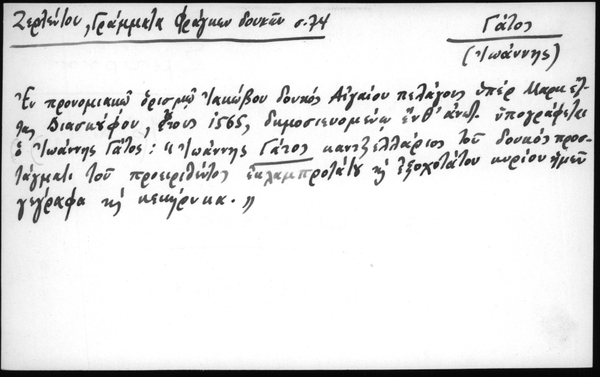 Ζερλέντου, Γράμματα Φράγκων δουκῶν σ. 74
Γάτος
(Ἰωάννης)
Ἐν προνομιακῷ ὁρισμῷ Ἰακώβου δουκός Αἰγαίου πελάγους ὑπέρ Μαρκέτ-
τας Διασκύφου, ἔτους 1565, δημοσιευομένῳ ἔνθ' ἀνωτ. ὑπογράφεται
ὁ Ἰωάννης Γάτος: "Ἰωάννης Γάτος καντζελλάριος τοῦ δουκός προσ-
τάγματι τοῦ προειρηθέντος ἐκλαμπροτάτου κ ἐξοχοτάτου κυρίου ἡμῶν
γεγράφα κ κεκήρυκα."